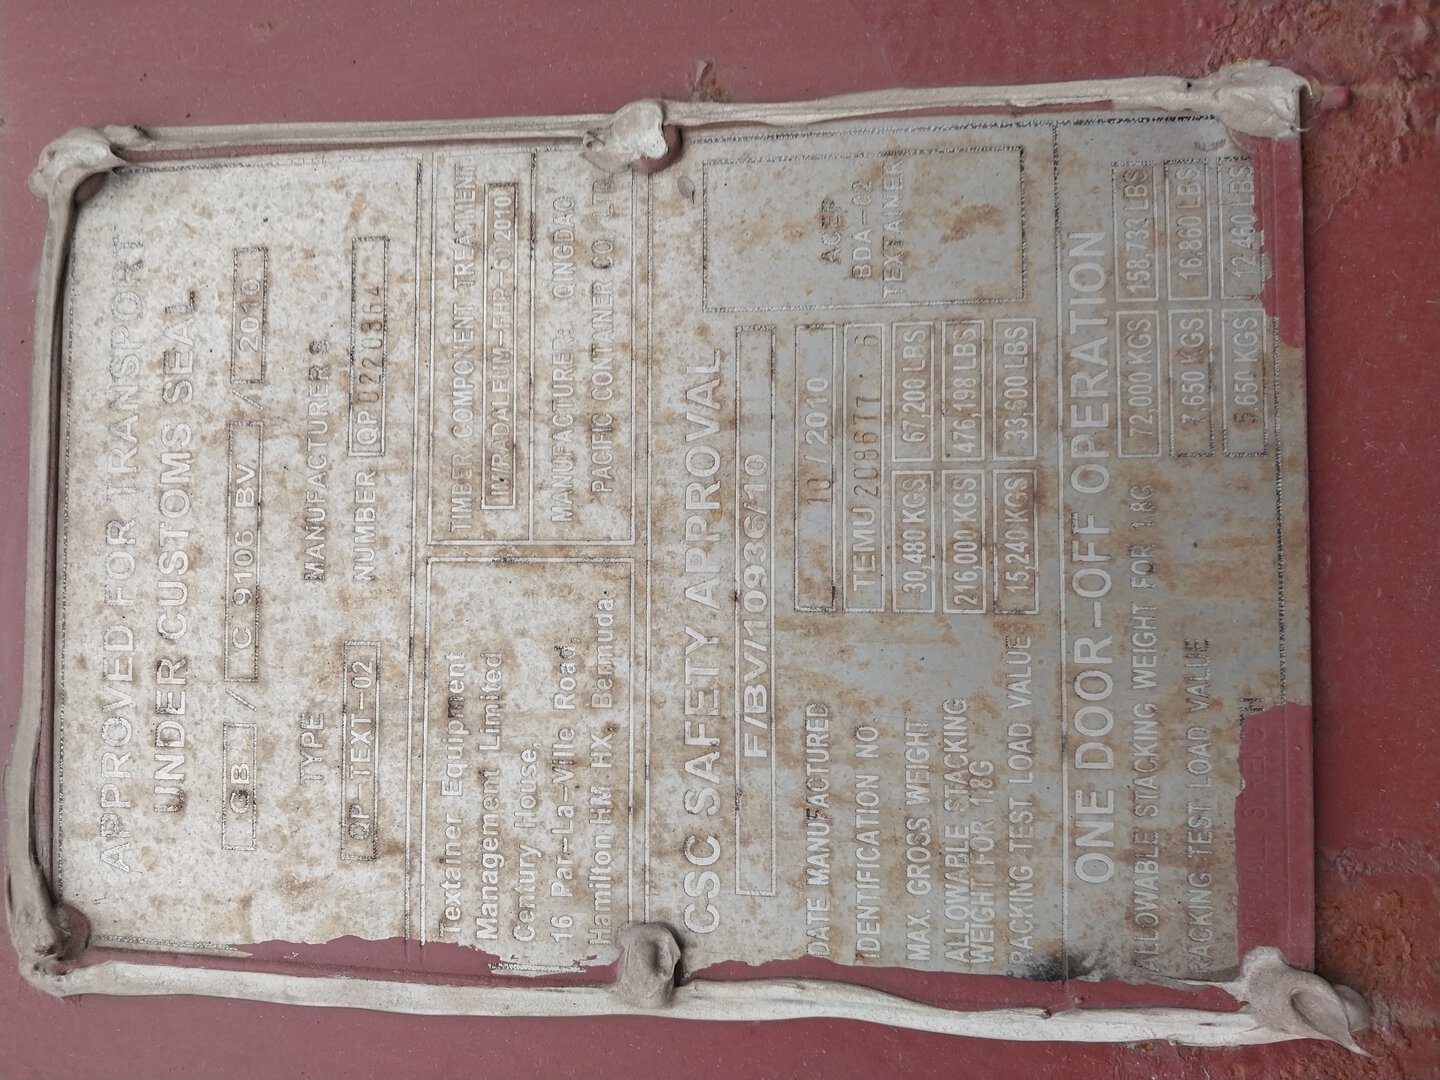 APPROVED FOR TRANSPORT
UNDER CUSTOMS SEAL
GB / C 9106 BV / 2010
TYPE MANUFACTURERS
QP-TEXT-02 NUMBER QP 0220364
Textainer Equipment
Management Limited
Century House,
16 Par-La-Ville Road,
Hamilton HM HX, Bermuda.
TIMBER COMPONENT TREAMENT
IM/RADALEUM-FHP-60 2010
MANUFACTURER: QINGDAO
PACIFIC CONTAINER CO LTD
CSC SAFETY APPROVAL
F/BV/10936/10
ACEP
BDA-02
TEXTAINER
DATE MANUFACTURED 10 /2010
IDENTIFICATION NO. TEMU 208677 6
MAX. GROSS WEIGHT 30,480 KGS 67,200 LBS
ALLOWABLE STACKING
WEIGHT FOR 1.8G 216,000 KGS 476,198 LBS
RACKING TEST LOAD VALUE 15,240 KGS 33,600 LBS
ONE DOOR-OFF OPERATION
ALLOWABLE STACKING WEIGHT FOR 1.8G 72,000 KGS 158,733 LBS
RACKING TEST LOAD VALUE 7,650 KGS 16,860 LBS
5 650 KGS 12,460 LBS